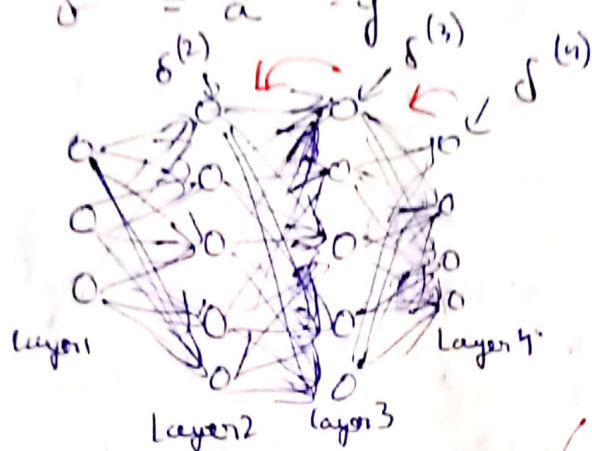 δ = a - y
δ(2) δ(3) δ(4)
Layer1 Layer4
Layer2 Layer3